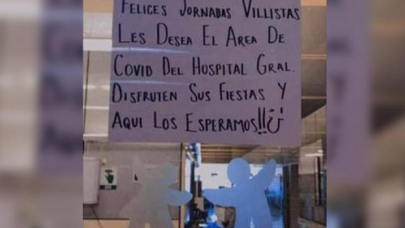 FELICES JORNADAS VILLISTAS
LES DESEA EL AREA DE
COVID DEL HOSPITAL GRAL.
DISFRUTEN SUS FIESTAS Y
AQUI LOS ESPERAMOS!!